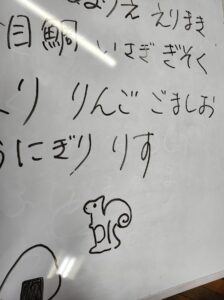 えりまき
目 鯛 いさぎ ぎそく
り りんご ごましお
おにぎり りす